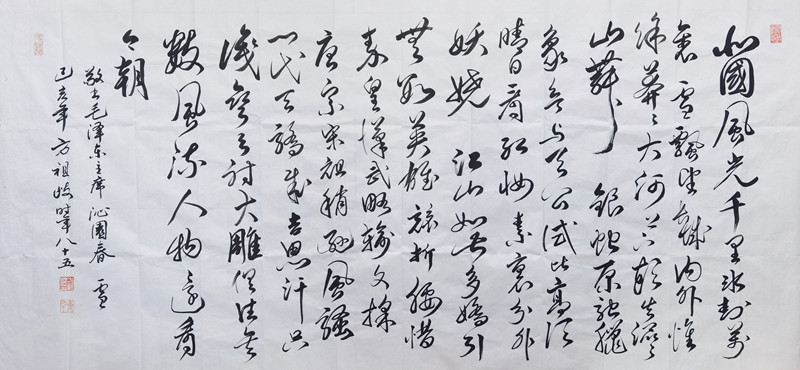 北國風光千里冰封萬
里雪飄望長城內外惟
餘莽〻大河上下頓失滔〻
山舞銀蛇原馳蠟
象欲與天公試比高須
晴日看紅妝素裹分外
妖嬈 江山如此多嬌引
無數英雄競折腰惜
秦皇漢武略輸文採
唐宗宋祖稍遜風騷
一代天驕成吉思汗只
識彎弓射大雕俱往矣
數風流人物還看
今朝
敬書毛澤東主席沁園春 雪
己亥年方祖岐時年八十五